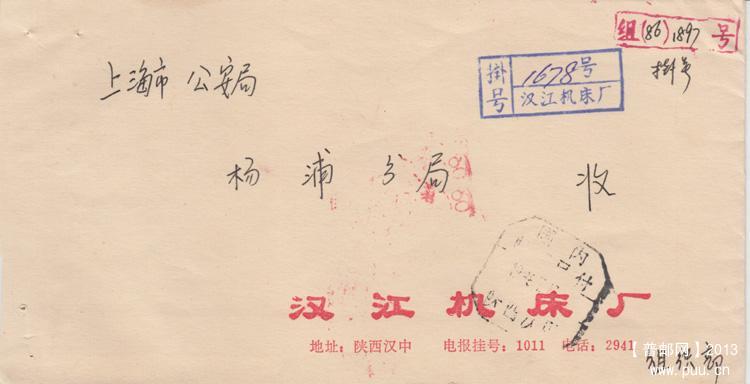 组(86)1897号
挂号
挂号 1678号
汉江机床厂
上海市公安局
杨浦分局 收
国内
汉江机床厂
地址：陕西汉中 电报挂号：1011 电话：2941
组织部
【普邮网】2013
www.puu.cn